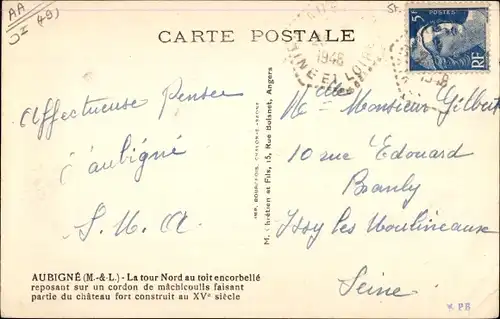 AA
(49)
CARTE POSTALE
1948
INE ET LOIRE
5F
POSTES
RF
Affectueuse Pensée
d'aubigné
Monsieur Gilbert
10 rue Edouard
Issy les Moulineaux
Seine
IMP. BOURGEOIS, CHALON-S-SAONE
M. Chrétien et Fils, 15, Rue Boisnet, Angers
AUBIGNÉ (M.-&L.) - La tour Nord au toit encorbellé
reposant sur un cordon de mâchicoulis faisant
partie du château fort construit au XVe siècle